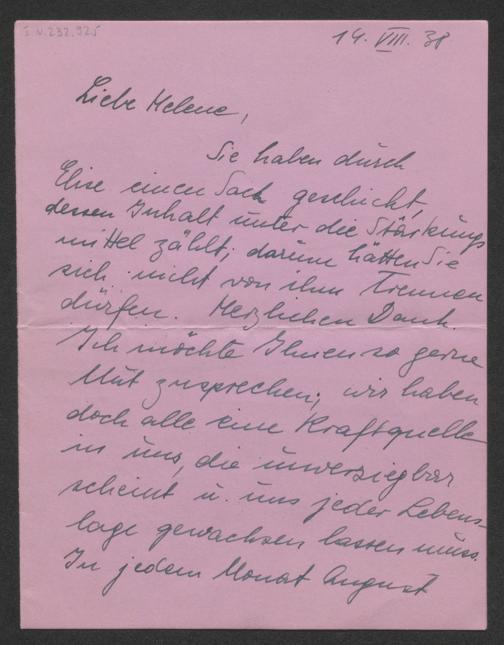 I.N. 232.925
14. VIII. 38
Liebe Helene,
Sie haben durch
Elise einen Sack geschickt,
dessen Inhalt unter die Stärkungs
mittel zählt; darum hätten Sie
sich nicht von ihm Trennen
dürfen. Herzlichen Dank.
Ich möchte Ihnen so gerne
Mut zusprechen; wir haben
doch alle eine Kraftquelle
in uns, die unversiegbar
scheint u. uns jeder Lebens-
lage gewachsen lassen muss.
In jedem Monat August